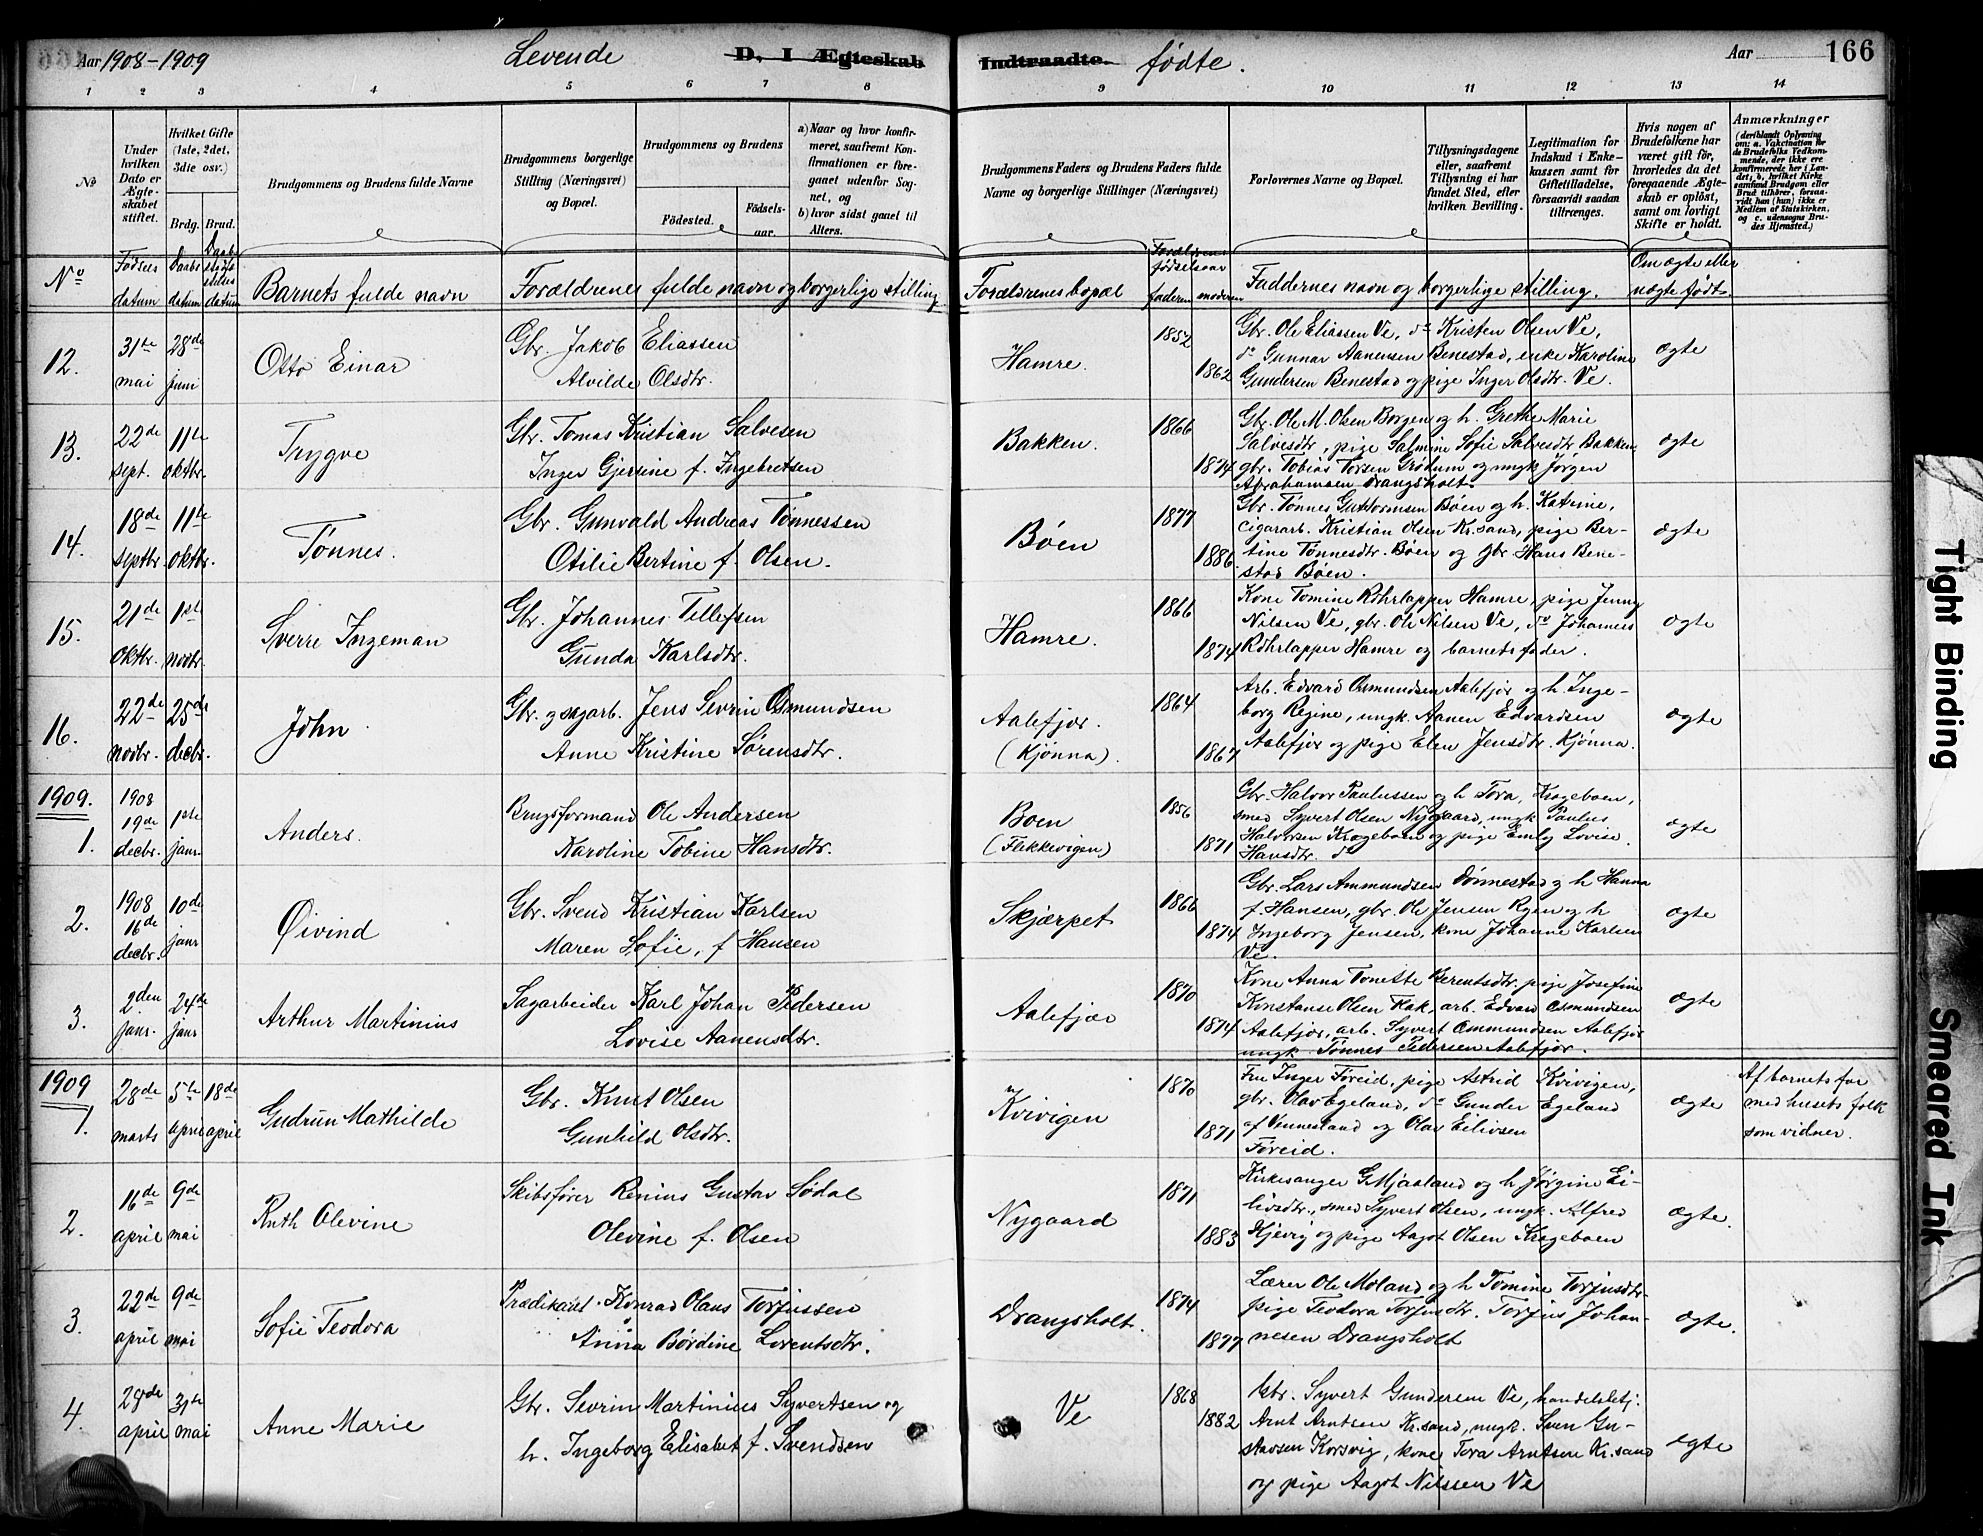 Aar 1908-1909
Levende
D. I Ægteskab
Indtraadte.
fødte.
Aar
166
1 2 3 4 5 6 7 8 9 10 11 12 13 14
No
Under hvilken Dato er Ægteskabet stiftet.
Hvilket Gifte (1ste, 2det, 3die osv.)
Brdg. Brud.
Brudgommens og Brudens fulde Navne
Brudgommens borgerlige Stilling (Næringsvei) og Bopæl.
Brudgommens og Brudens
Fødested.
Fødselsaar.
a) Naar og hvor konfirmeret, saafremt Konfirmationen er foregaaet udenfor Sognet, og
b) hvor sidst gaaet til Alters.
Brudgommens Faders og Brudens Faders fulde Navne og borgerlige Stillinger (Næringsvei)
Forlovernes Navne og Bopæl.
Tillysningsdagene eller, saafremt Tillysning ei har fundet Sted, efter hvilken Bevilling.
Legitimation for Indskud i Enkekassen samt for Giftetilladelse, forsaavidt saadan tiltrænges.
Hvis nogen af Brudefolkene har været gift før, hvorledes da det foregaaende Ægteskab er opløst, samt om lovligt Skifte er holdt.
Anmærkninger
(deriblandt Oplysning om: a. Vakcination for de Brudefolks Vedkommende, der ikke ere konfirmerede her i Landet; b. hvilket Kirkesamfund Brudgom eller Brud tilhører, forsaavidt han (hun) ikke er Medlem af Statskirken, og c. udensogns Brudes Hjemsted.)
No
Fødsels datum
Daabs datum
Daabs stadf stelses datum
Barnets fulde navn
Forældrenes fulde navn og borgerlige stilling
Forældrenes bopæl
Forældrenes fødselsaar
faderen moderen
Faddernes navn og borgerlige stilling.
Om ægte eller uægte født.
12. 31te mai 28de juni
Otto Einar
Gbr. Jakob Eliassen
Alvilde Olsdtr.
Hamre.
1852
1862
Gbr. Ole Eliassen Ve, do Kristen Olsen Ve,
do Gunnar Aanensen Benestad, enke Karoline
Gundersen Benestad og pige Inger Olsdtr. Ve.
ægte
13. 22de sept. 11te oktbr.
Trygve
Gbr. Tomas Kristian Salvesen
Inger Gjersine f. Ingebretsen
Bakken.
1866
1874
Gbr. Ole M. Olsen Borgen og h. Grethe Marie
Salvesdtr, pige Salmine Sofie Salvesdtr Bakken,
gbr. Tobias Torsen Grødum og ungk Jørgen
Abrahamsen Drangsholt.
ægte
14. 18de septbr. 11te oktbr.
Tønnes.
Gbr. Gunvald Andreas Tønnessen
Otilie Bertine f. Olsen.
Bøen
1877
1886
Gbr. Tønnes Guttormsen Bøen og h. Katrine,
cigararb. Kristian Olsen Kr.sand, pige Ber-
tine Tønnesdtr. Bøen og gbr Hans Bene-
stad Bøen.
ægte
15. 21de oktbr. 1ste novbr.
Sverre Ingeman
Gbr. Johannes Tellefsen
Gunda Karlsdtr.
Hamre.
1866
1874
Kone Tomine Rohrlapper Hamre, pige Jenny
Nilsen Ve, gbr. Ole Nilsen Ve, do Johannes
Rohrlapper Hamre og barnets fader.
ægte
16. 22de novbr. 25de decbr.
John
Gbr. og sagarb. Jens Sevrin Osmundsen
Anne Kristine Sørensdtr.
Aalefjær.
(Kjønna).
1864
1867
Arb. Edvard Osmundsen Aalefjær og h. Inge-
borg Regine, ungk. Aanen Edvardsen
Aalefjær og pige Elen Jensdtr. Kjønna.
ægte
1909.
1. 1908 19de decbr. 1ste janr.
Anders.
Brugsformand Ole Andersen
Karoline Tobine Hansdtr.
Boen
(Flekkevigen)
1856
1871
Gbr. Halvor Paulussen og h Tora, Krageboen,
smed Syvert Olsen Nygaard, ungk Paulus
Halvorsen Krageboen og pige Emly Lovise
Hansdtr. do
ægte
2. 1908 16de decbr. 10de janr
Øivind
Gbr. Svend Kristian Karlsen
Maren Sofie, f Hansen
Skjærpet
1866
1874
Gbr. Lars Ammundsen Dønnestad og h Hanna
f. Hansen, gbr. Ole Jensen Ryen og h
Ingeborg Jensen, kone Johanne Karlsen
Ve.
ægte
3. 2den janr. 24de janr
Arthur Martinius
Sagarbeider Karl Johan Pedersen
Lovise Aanensdtr.
Aalefjær
1870
1874
Kone Anna Tonette Berentsdtr. pige Josefine
Konstanse Olsen Flak, arb. Edvard Osmundsen
Aalefjær, arb. Syvert Ommundsen Aalefjær
ungk Tønnes Pedersen Aalefjær.
ægte
1909
1. 28de marts 5te april 18de april
Gudrun Mathilde
Gbr. Knut Olsen
Gunhild Olsdtr.
Kvivigen
1870
1871
Fru Inger Føreid, pige Astrid Kvivigen,
gbr. Olav Egeland, do Gunder Egeland
af Vennesland og Olav Eilivsen
Føreid.
ægte
Af barnets far
med husets folk
som vidner.
2. 16de april 9de mai
Ruth Olevine
Skibsfører Renius Gustav Sødal
Olevine f. Olsen
Nygaard
1871
1883
Kirkesanger G. Mjaaland og h Jørgine Ei-
livsdtr., smed Syvert Olsen, ungk. Alfred
Kjevig og pige Aagot Olsen Krageboen
ægte.
3. 22de april 9de mai
Sofie Teodora
Prædikant. Konrad Olaus Torjussen
Anna Bordine Lorentsdtr.
Drangsholt.
1874
1877
Lærer Ole Moland og h Tomine Torjusdtr.
pige Teodora Torjusdtr. Torjus Johan-
nesen Drangsholt
ægte.
4. 28de april 31te mai
Anne Marie
Gbr. Sevrin Martinius Syvertsen og
h. Ingeborg Elisabet f. Svendsen
Ve
1868
1882
Gbr. Syvert Gundersen Ve, handelsbetj.
Arnt Arntsen Kr.sand, ungk. Sven Gu-
stavsen Korsvig, kone Tora Arntsen Kr.sand
og pige Aagot Nilssen Ve
ægte
Tight Binding
Smeared Ink